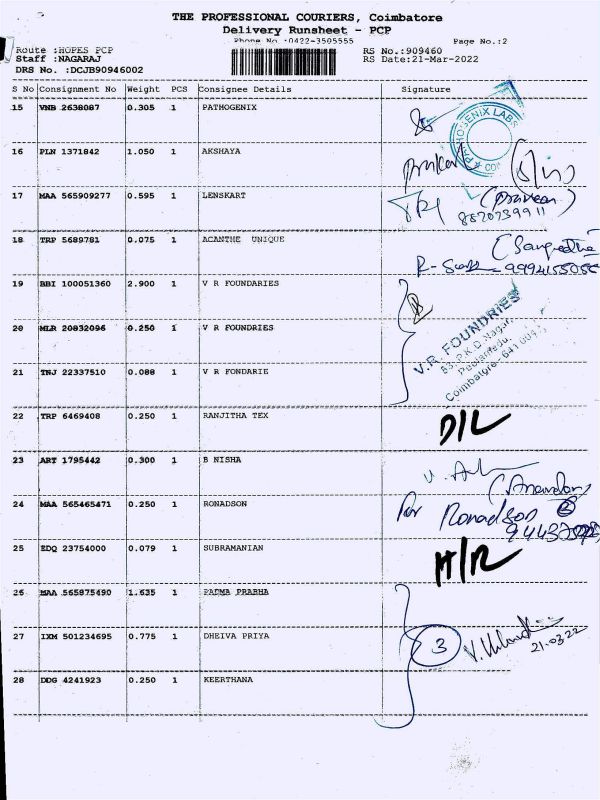 THE PROFESSIONAL COURIERS, Coimbatore
Delivery Runsheet - PCP
Phone No. :0422-3505555 Page No.:2
Route :HOPES PCP RS No.:909460
Staff :NAGARAJ RS Date:21-Mar-2022
DRS No. :DCJB90946002
S No Consignment No Weight PCS Consignee Details Signature
15 VNB 2638087 0.305 1 PATHOGENIX
PATHOGENIX LABS
16 PLN 1371842 1.050 1 AKSHAYA
17 MAA 565909277 0.595 1 LENSKART
(Praveen)
8870739911
18 TRP 5689781 0.075 1 ACANTHE UNIQUE
(Sangeetha
9994155055
19 BBI 100051360 2.900 1 V R FOUNDARIES
20 MLR 20832096 0.250 1 V R FOUNDRIES
V.R. FOUNDRIES
83, P.K.D. Nagar,
Peelamedu,
Coimbatore - 641 004
21 TNJ 22337510 0.088 1 V R FONDARIE
22 TRP 6469408 0.250 1 RANJITHA TEX
D/L
23 ART 1795442 0.300 1 B NISHA
24 MAA 565465471 0.250 1 RONADSON
For Ronadson
25 EDQ 23754000 0.079 1 SUBRAMANIAN
26 MAA 565875490 1.635 1 PADMA PRABHA
27 IXM 501234695 0.775 1 DHEIVA PRIYA
3
21.03.22
28 DDG 4241923 0.250 1 KEERTHANA